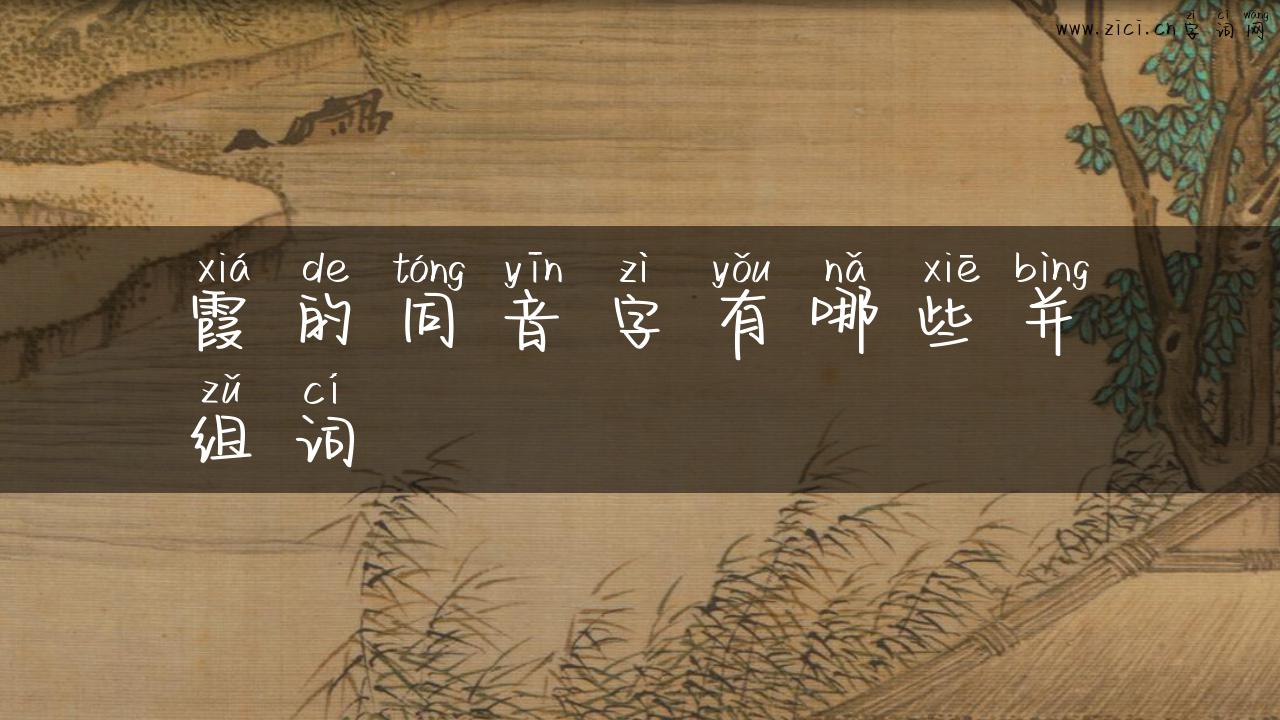 zì cí wǎng
www.zici.cn字词网
xiá de tóng yīn zì yǒu nǎ xiē bìng
霞的同音字有哪些并
zǔ cí
组词